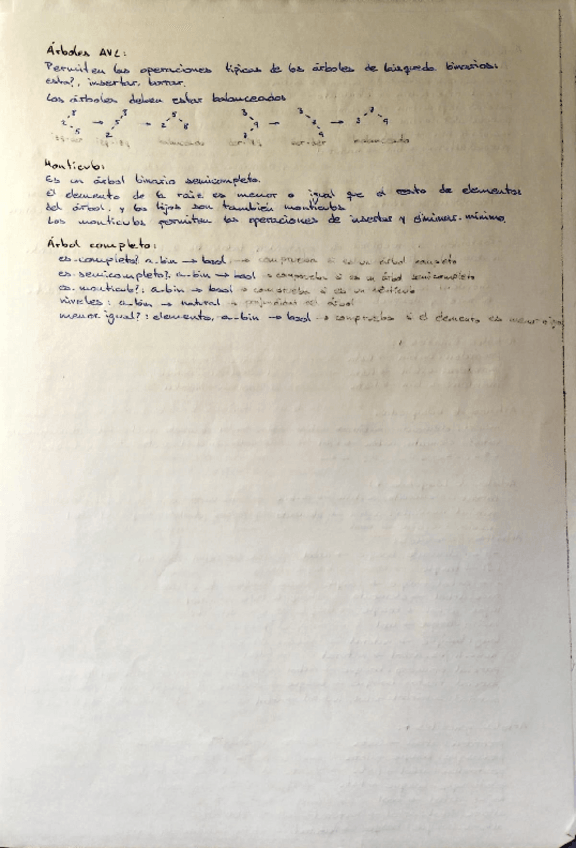 Árboles AVL:
Permiten las operaciones típicas de los árboles de búsqueda binarios:
está?, insertar, borrar.
Los árboles deben estar balanceados
balanceado balanceado
Montículo:
Es un árbol binario semicompleto.
El elemento de la raíz es menor o igual que el resto de elementos
del árbol, y los hijos son también montículos.
Los montículos permiten las operaciones de insertar y eliminar mínimo.
Árbol completo:
es-completo? a-bin → bool → comprueba si es un árbol completo
es-semicompleto?: a-bin → bool → comprueba si es un árbol semicompleto
es-montículo?: a-bin → bool → comprueba si es un montículo
niveles: a-bin → natural → del árbol
menor.igual?: elemento, a-bin → bool → comprueba si el elemento es menor o igual